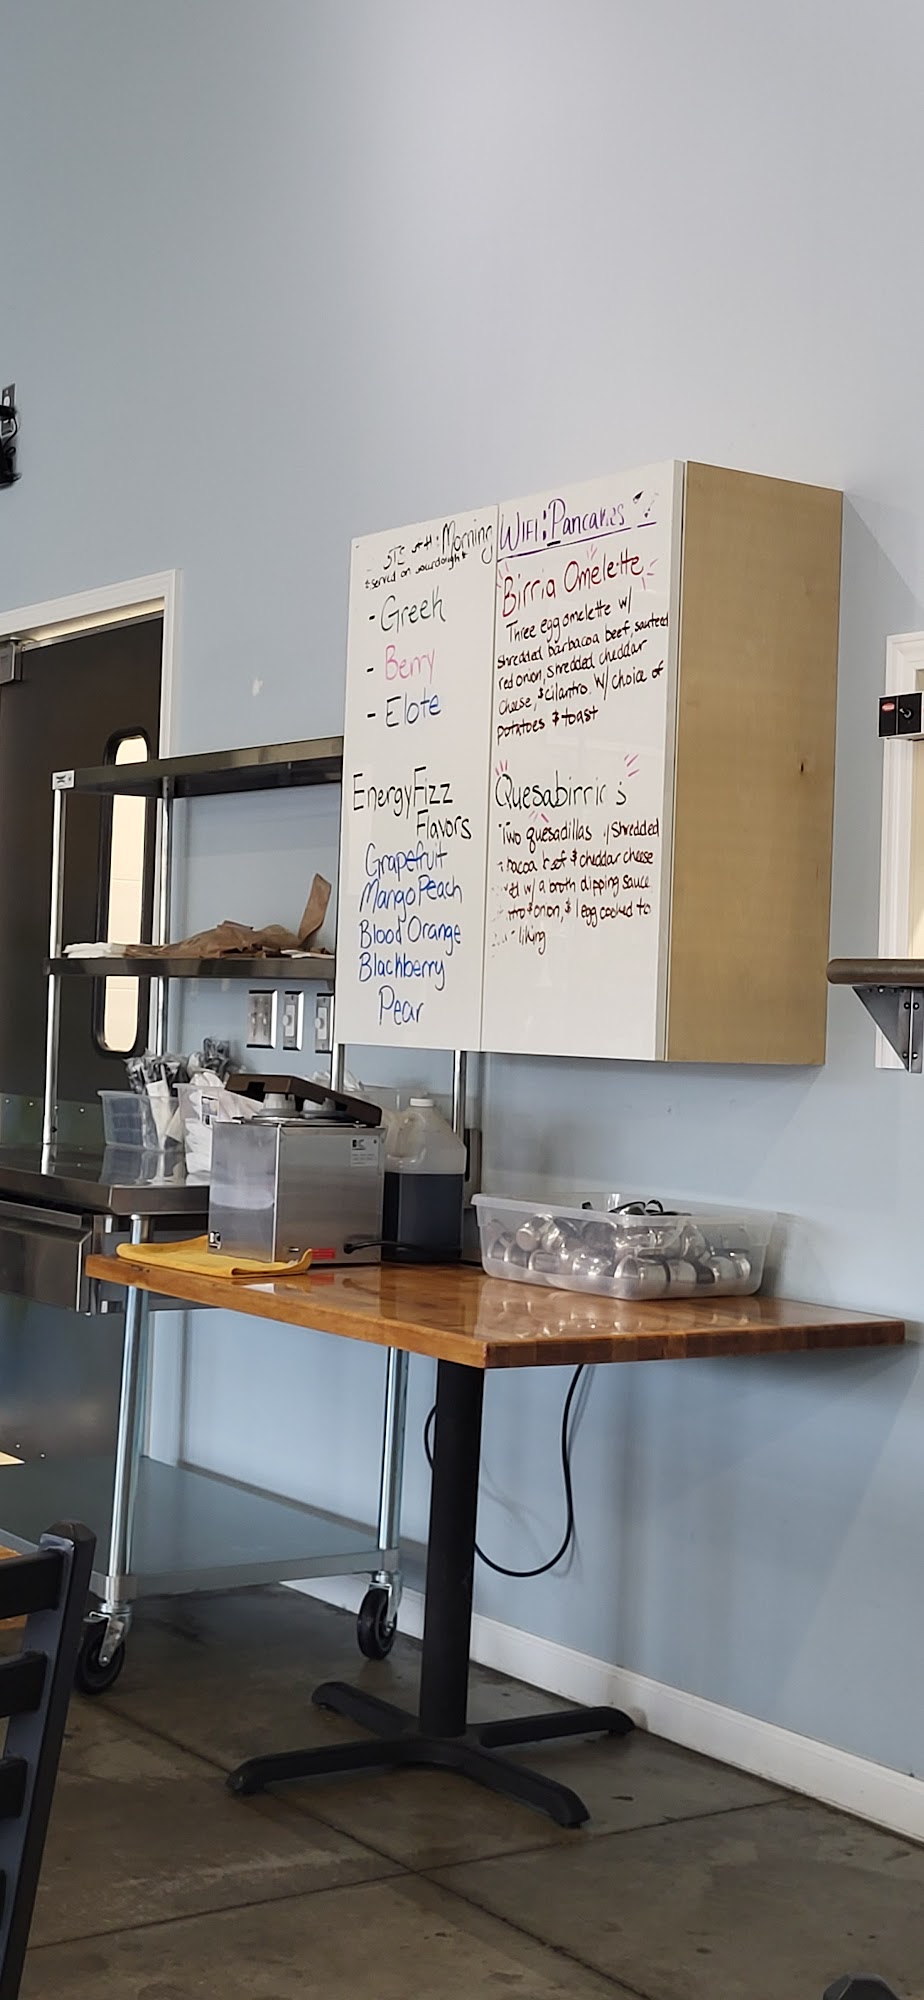 Morning
*served on sourdough*
- Greek
- Berry
- Elote
EnergyFizz
Flavors
Grapefruit
Mango Peach
Blood Orange
Blackberry
Pear
WIFI: Pancakes
Birria Omelette
Three egg omelette w/
shredded barbacoa beef, sauteed
red onion, shredded cheddar
cheese, & cilantro. W/ choice of
potatoes & toast
Two quesadillas w/ shredded
beef & cheddar cheese
w/ a broth dipping sauce
& onion, & 1 egg cooked to
liking